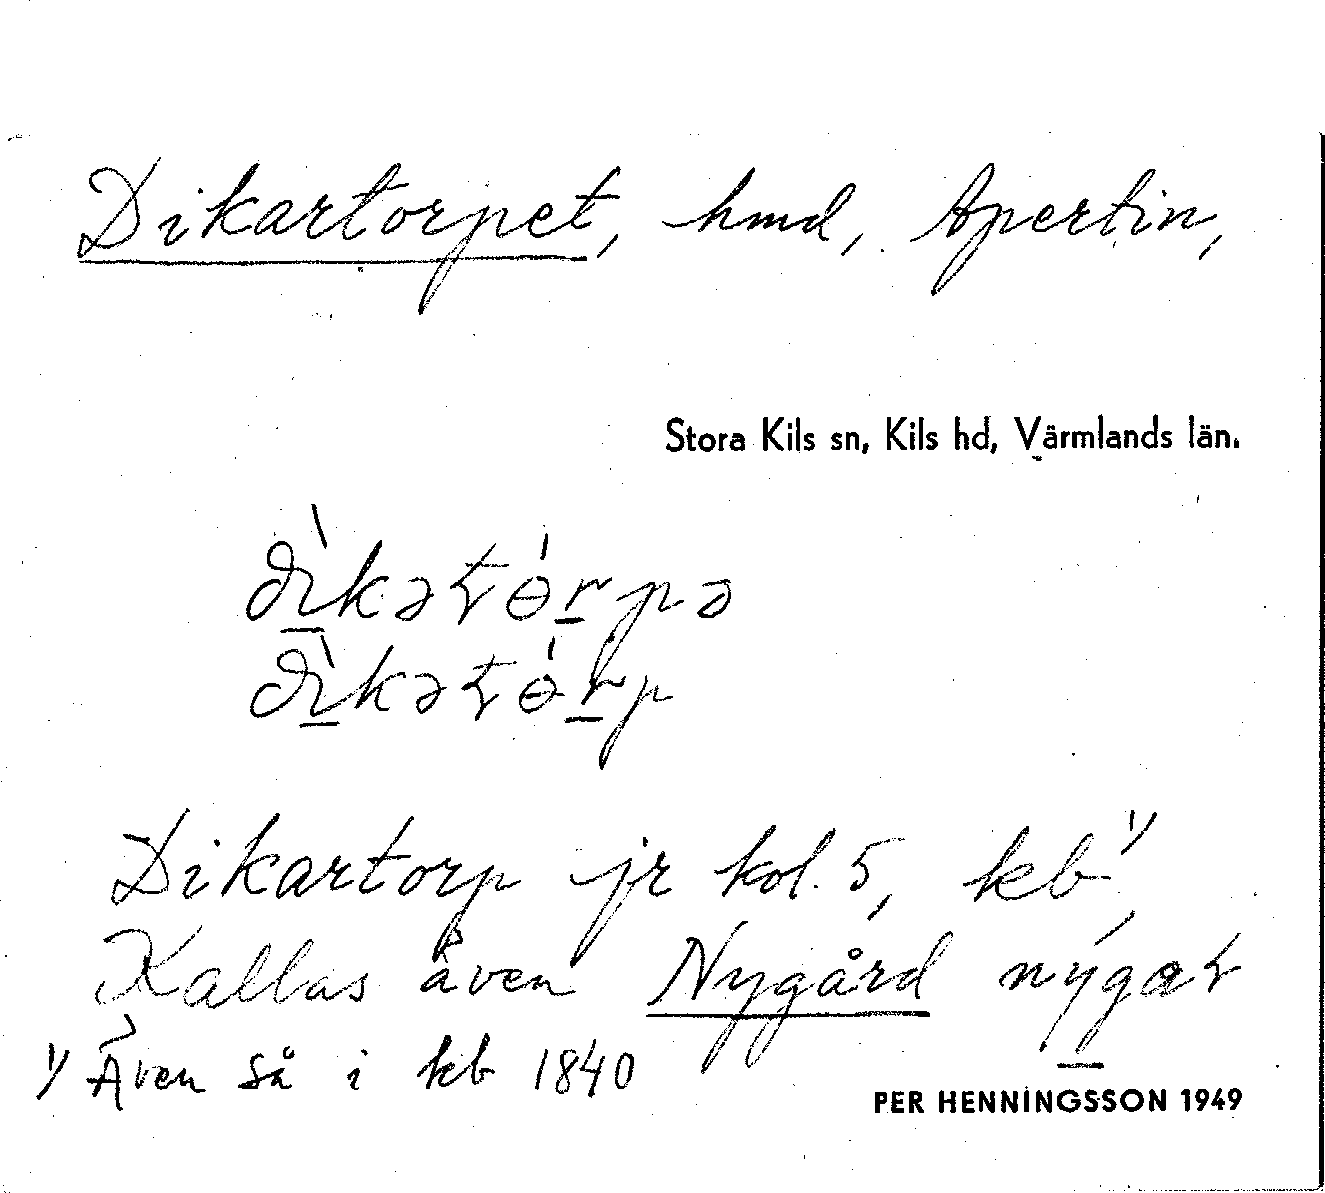 Dikartorpet, hmd, Apertin,
Stora Kils sn, Kils hd, Värmlands län.
dìkətɵ́rpə
dìkətɵ́rp
Dikartorp jr kol. 5, kb 1)
Kallas även Nygård nýgaɽ
1) Även så i kb 1840
PER HENNINGSSON 1949